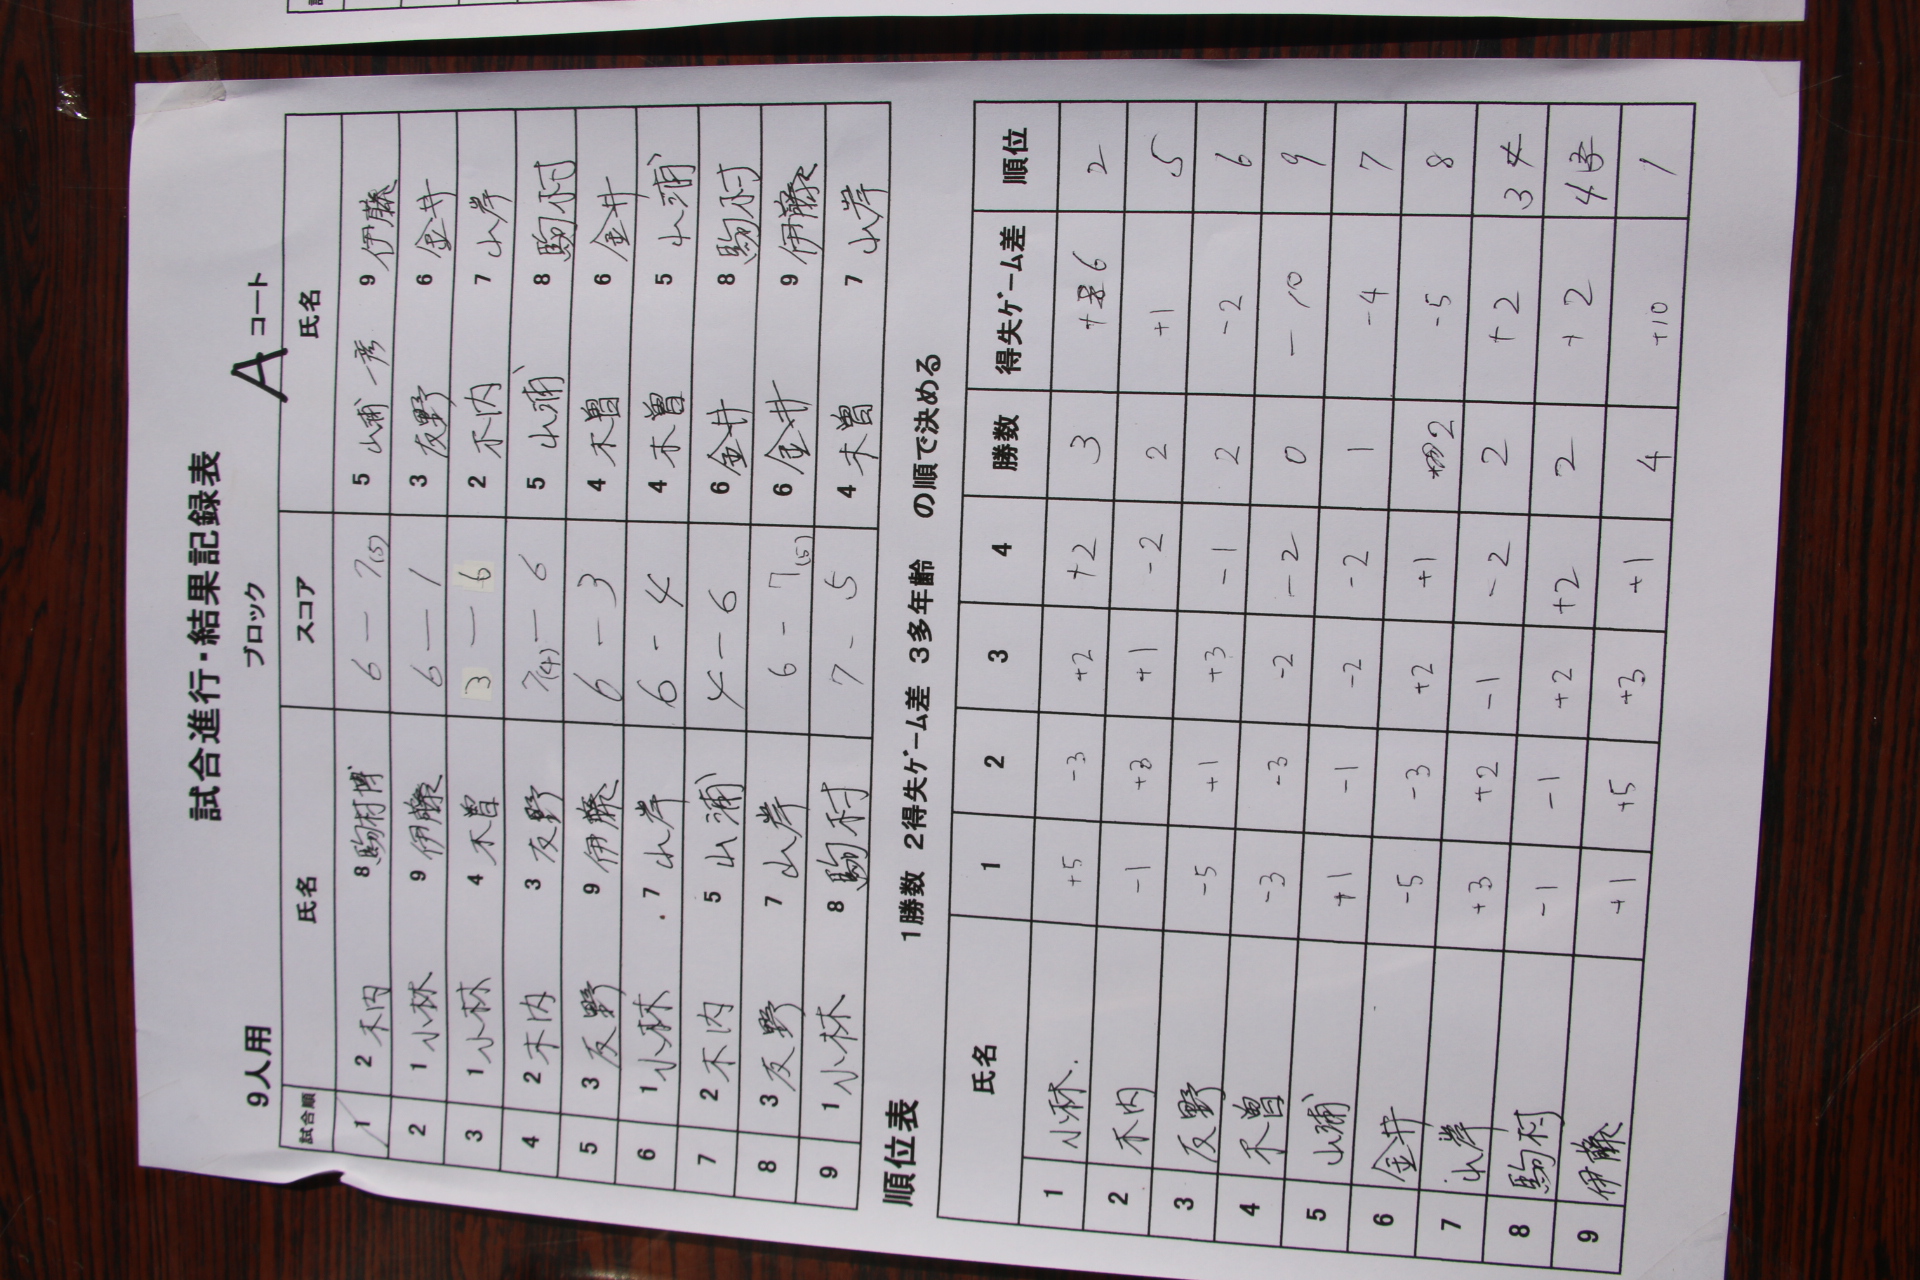 試合進行・結果記録表
9人用 ブロック A コート
試合順 氏名 スコア 氏名
1 2 木内 8 駒村博 6 — 7(5) 5 山浦一彦 9 伊藤
2 1 小林 9 伊藤 6 — 1 3 友野 6 金井
3 1 小林 4 木曽 3 — 6 2 木内 7 山岸
4 2 木内 3 友野 7(4) — 6 5 山浦 8 駒村
5 3 友野 9 伊藤 6 — 3 4 木曽 6 金井
6 1 小林 7 山岸 6 - 4 4 木曽 5 山浦
7 2 木内 5 山浦 4 — 6 6 金井 8 駒村
8 3 友野 7 山岸 6 - 7(5) 6 金井 9 伊藤
9 1 小林 8 駒村 7 - 5 4 木曽 7 山岸
順位表 1勝数 2得失ゲーム差 3多年齢 の順で決める
氏名 1 2 3 4 勝数 得失ゲーム差 順位
1 小林. +5 -3 +2 +2 3 +6 2
2 木内 -1 +3 +1 -2 2 +1 5
3 友野 -5 +1 +3 -1 2 -2 6
4 木曽 -3 -3 -2 -2 0 -10 9
5 山浦 +1 -1 -2 -2 1 -4 7
6 金井 -5 -3 +2 +1 2 -5 8
7 山岸 +3 +2 -1 -2 2 +2 3
8 駒村 -1 -1 +2 +2 2 +2 4
9 伊藤 +1 +5 +3 +1 4 +10 1